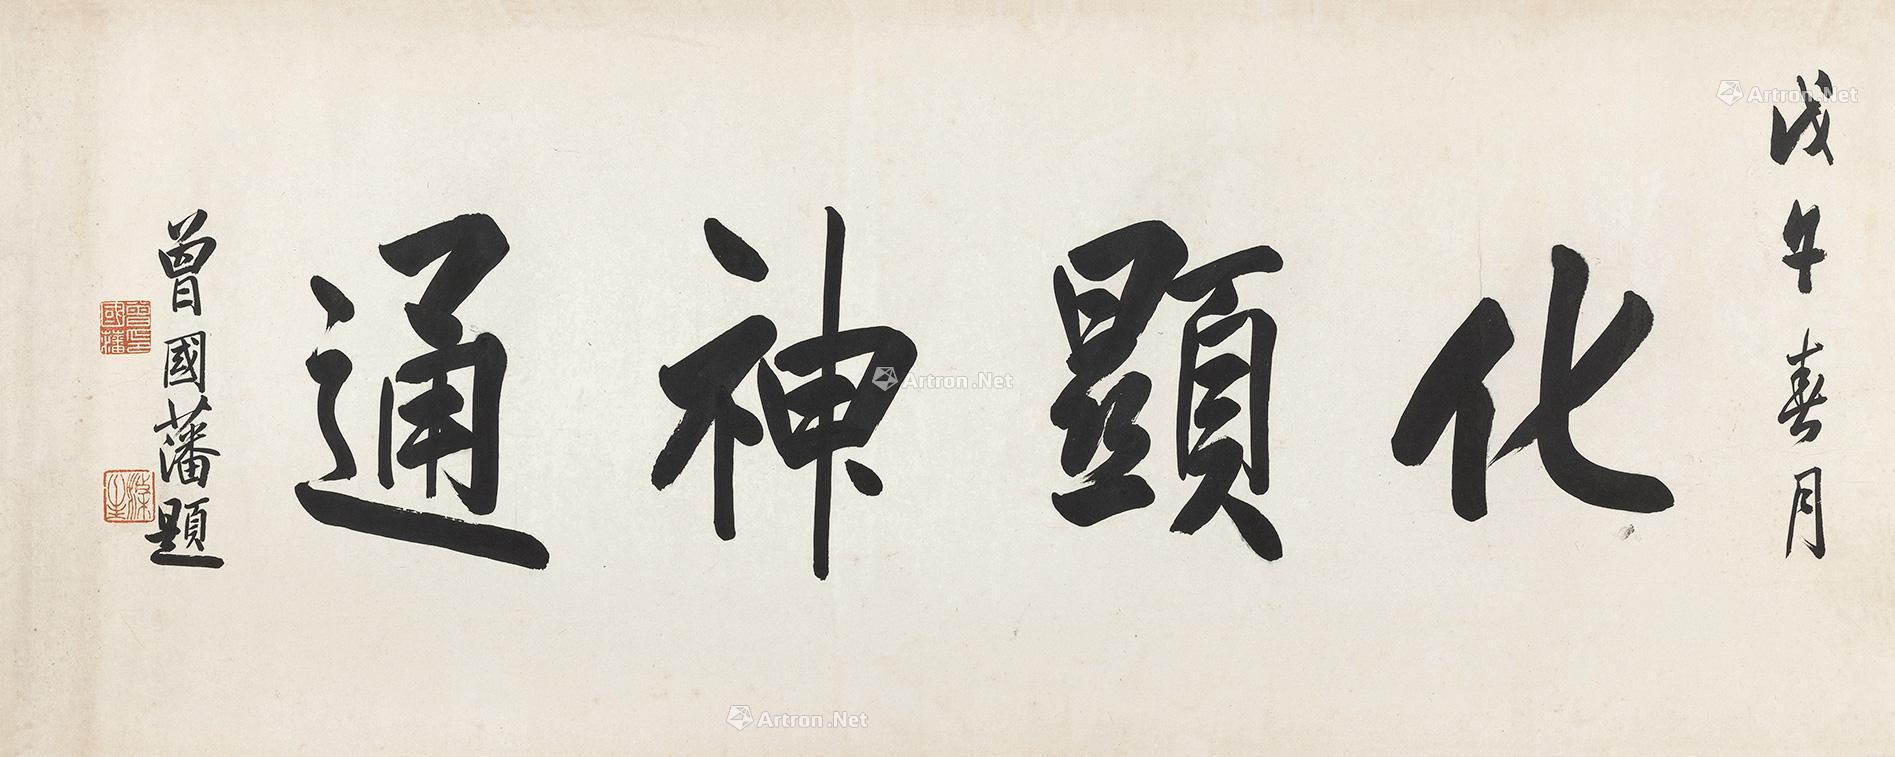 戊午春月
化顯神通
曾國藩題
曾國藩印
滌生
Artron.Net
Artron.Net
Artron.Net